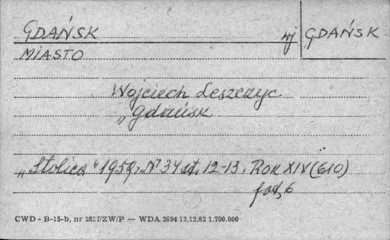 GDAŃSK wj GDAŃSK
MIASTO
Wojciech Leszczyc
„Gdańsk
„Stolica" 1959, Nº 34 st. 12-13, ROK XIV (610)
fot, 6
CWD - B-15-b, nr /ZW/P — WDA 2694 13.12.62 1.700.000